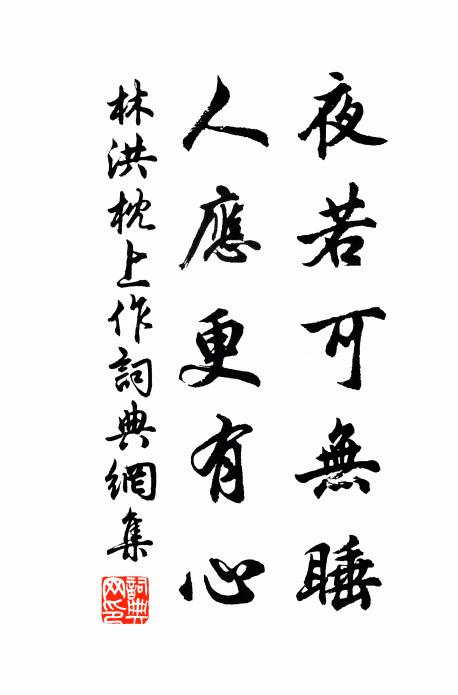 夜若可無睡
人應更有心
林洪枕上作詞典網集
詞典
网印